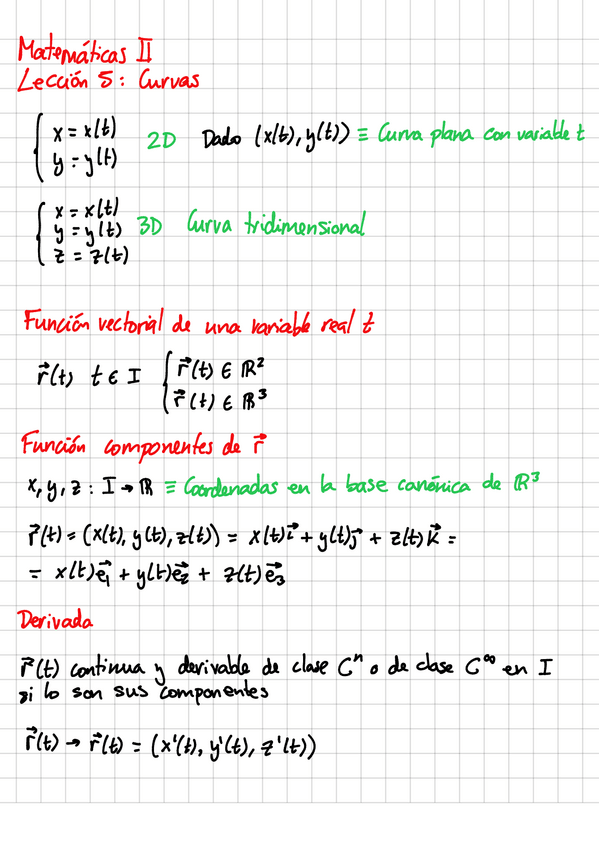 Matemáticas II
Lección 5: Curvas
{ x = x(t)
y = y(t) 2D Dado (x(t), y(t)) ≡ Curva plana con variable t
{ x = x(t)
y = y(t) 3D Curva tridimensional
z = z(t)
Función vectorial de una variable real t
r⃗(t) t ∈ I { r⃗(t) ∈ ℝ²
r⃗(t) ∈ ℝ³
Función componentes de r⃗
x, y, z : I → ℝ ≡ Coordenadas en la base canónica de ℝ³
r⃗(t) = (x(t), y(t), z(t)) = x(t)i⃗ + y(t)j⃗ + z(t)k⃗ =
= x(t)e⃗₁ + y(t)e⃗₂ + z(t)e⃗₃
Derivada
r⃗(t) continua y derivable de clase Cⁿ o de clase C^∞ en I
si lo son sus componentes
r⃗(t) → r⃗(t) = (x'(t), y'(t), z'(t))